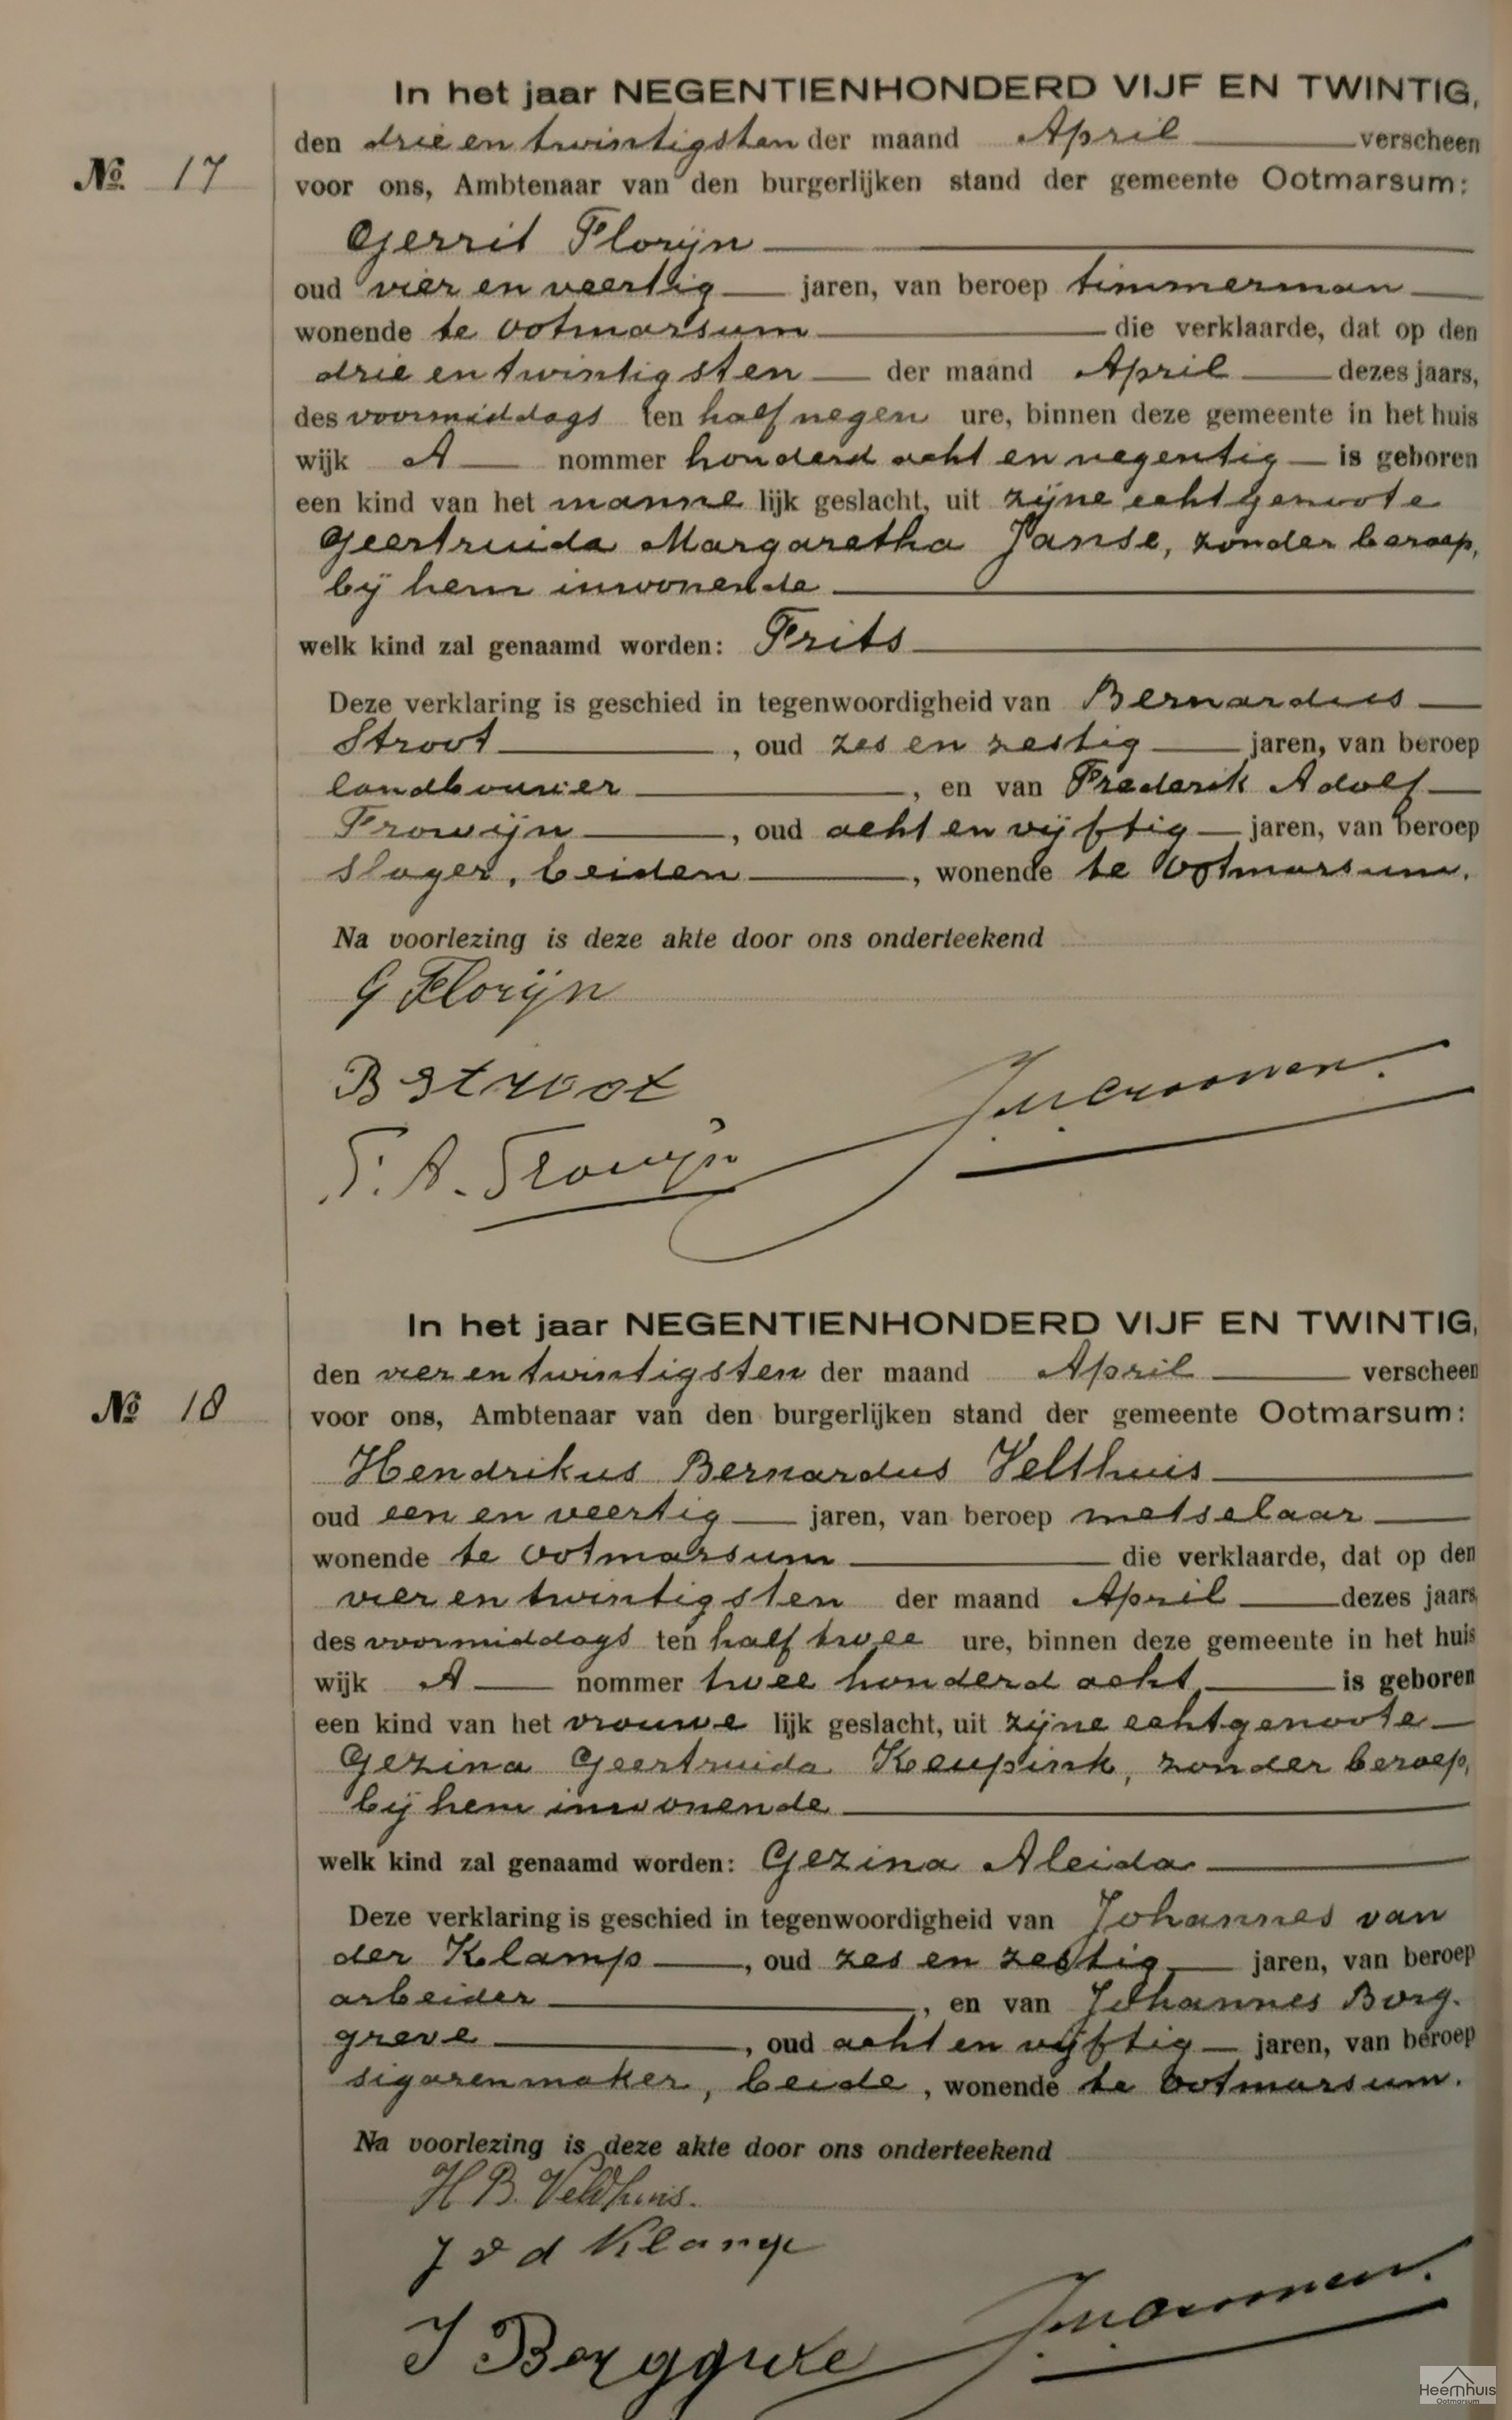 In het jaar NEGENTIENHONDERD VIJF EN TWINTIG,
den drie en twintigsten der maand April verscheen
No 17
voor ons, Ambtenaar van den burgerlijken stand der gemeente Ootmarsum:
Gerrit Florijn
oud vier en veertig jaren, van beroep timmerman
wonende te Ootmarsum die verklaarde, dat op den
drie en twintigsten der maand April dezes jaars,
des voormiddags ten half negen ure, binnen deze gemeente in het huis
wijk A nommer honderd acht en negentig is geboren
een kind van het manne lijk geslacht, uit zijne echtgenoote
Geertruida Margaretha Janse, zonder beroep,
bij hem inwonende
welk kind zal genaamd worden: Frits
Deze verklaring is geschied in tegenwoordigheid van Bernardus
Stroot, oud zes en zestig jaren, van beroep
landbouwer, en van Frederik Adolf
Frowijn, oud acht en vijftig jaren, van beroep
slager, beiden, wonende te Ootmarsum.
Na voorlezing is deze akte door ons onderteekend
G Florijn
B Stroot
F. A. Frowijn
In het jaar NEGENTIENHONDERD VIJF EN TWINTIG,
den vier en twintigsten der maand April verscheen
No 18
voor ons, Ambtenaar van den burgerlijken stand der gemeente Ootmarsum:
Hendrikus Bernardus Velthuis
oud een en veertig jaren, van beroep metselaar
wonende te Ootmarsum die verklaarde, dat op den
vier en twintigsten der maand April dezes jaars
des voormiddags ten half twee ure, binnen deze gemeente in het huis
wijk A nommer twee honderd acht is geboren
een kind van het vrouwe lijk geslacht, uit zijne echtgenoote
Gezina Geertruida Keupink, zonder beroep,
bij hem inwonende
welk kind zal genaamd worden: Gezina Aleida
Deze verklaring is geschied in tegenwoordigheid van Johannes van
der Klamp, oud zes en zestig jaren, van beroep
arbeider, en van Johannes Borg-
greve, oud acht en vijftig jaren, van beroep
sigarenmaker, beide, wonende te Ootmarsum.
Na voorlezing is deze akte door ons onderteekend
H B. Veldhuis.
J v d Klamp
J Borggreve
Heemhuis
Ootmarsum